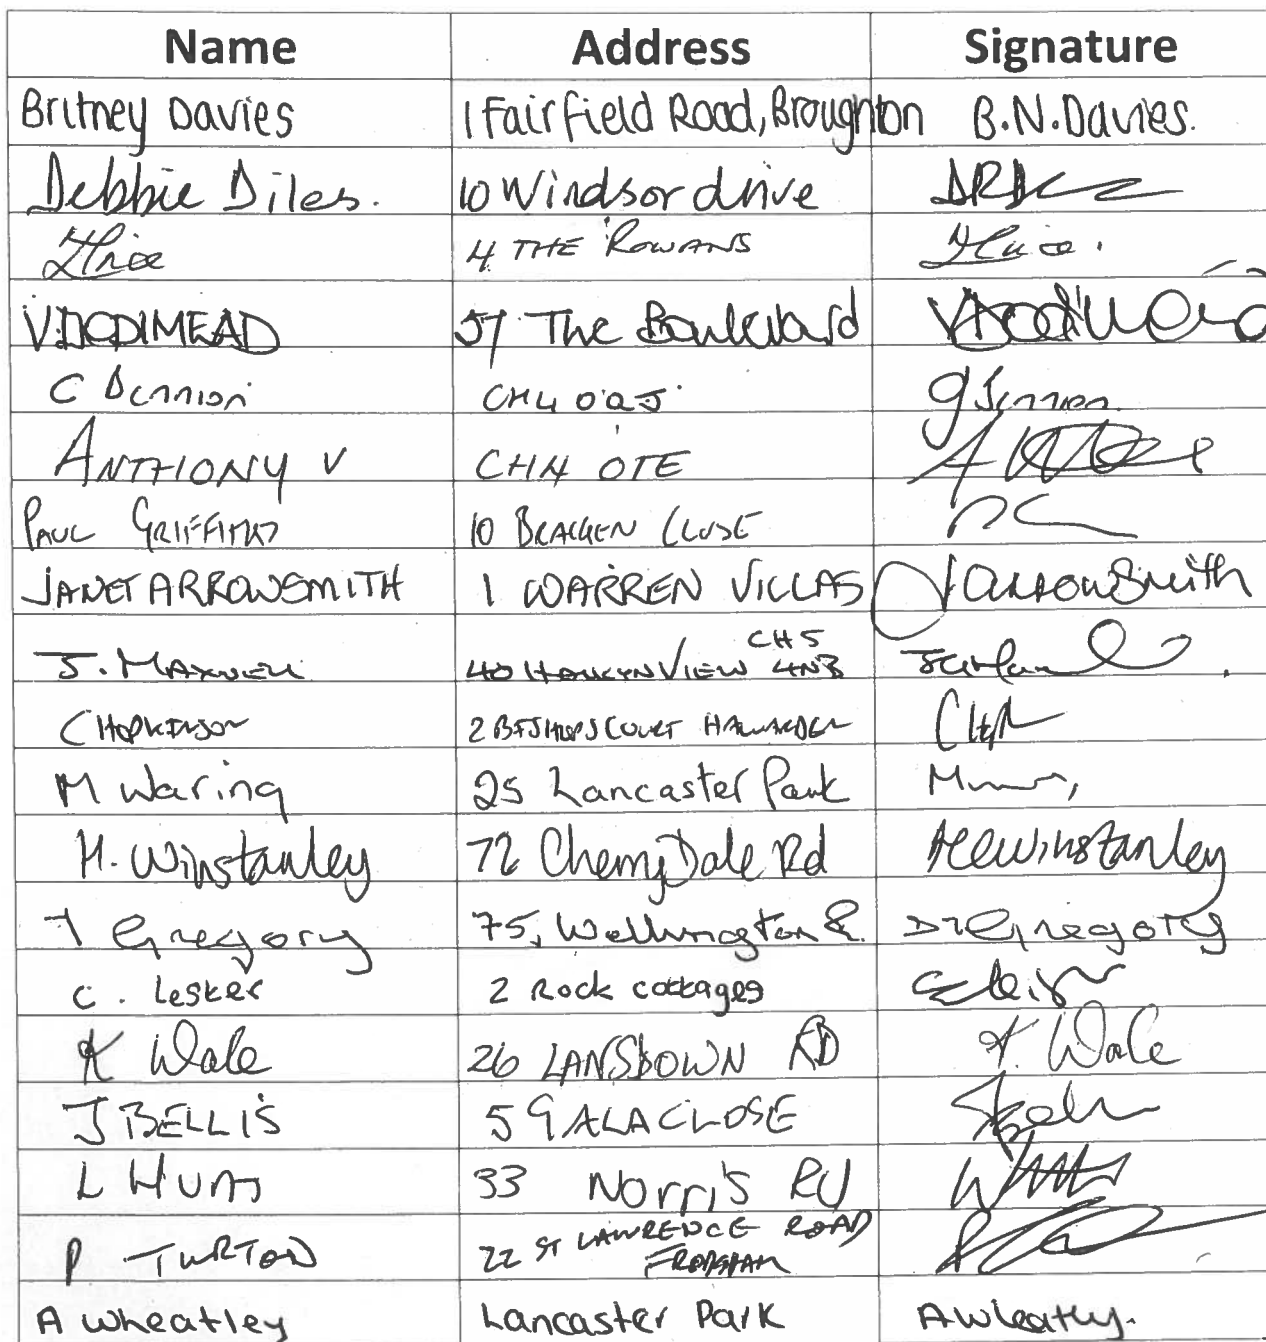 Name Address Signature
Britney Davies 1 Fairfield Road, Broughton B.N.Davies.
Debbie Diles. 10 Windsor drive
4 THE ROWANS
V.DODIMEAD 57 The Boulevard
C Dennion CH4 0QJ
ANTHONY V CH4 0TE
PAUL GRIFFITHS 10 BRACKEN CLOSE
JANET ARROWSMITH 1 WARREN VILLAS JArrowSmith
J. MAXWELL 40 HALKYN VIEW CH5 4NB
C HOPKINSON 2 BISHOPS COURT HAWARDEN
M Waring 25 Lancaster Park
H. Winstanley 72 Cherry Dale Rd Winstanley
T Gregory 75, Wellington Gregory
C. Lester 2 Rock cottages
K Wale 26 LANSDOWN RD K. Wale
J BELLIS 5 GALA CLOSE
L Hunt 33 Norris Rd
P TURTON 22 ST LAWRENCE ROAD FRODSHAM
A Wheatley Lancaster Park A Wheatley.